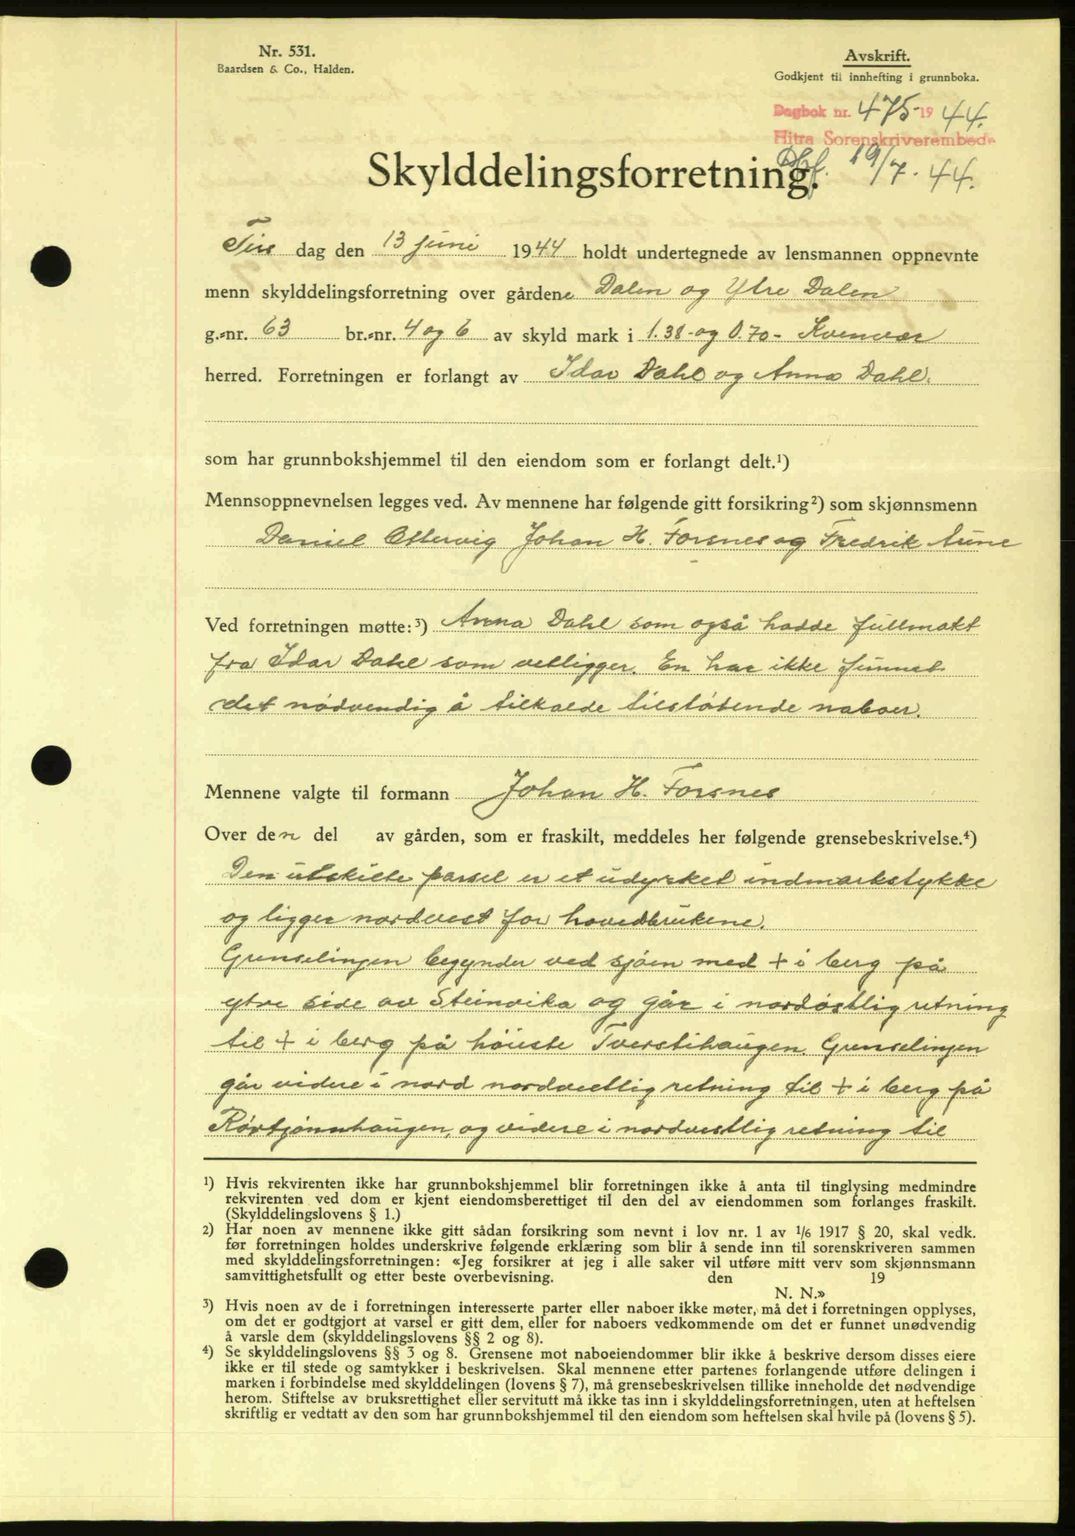 Nr. 531.
Baardsen & Co., Halden.
Avskrift.
Godkjent til innhefting i grunnboka.
Dagbok nr. 475 - 19 44.
Hitra Sorenskriverembede
Dbf. 19/7 - 44.
Skylddelingsforretning.
Tirs dag den 13 juni 1944 holdt undertegnede av lensmannen oppnevnte
menn skylddelingsforretning over gårdene Dalen og Ytre Dalen
g.-nr. 63 br.-nr. 4 og 6 av skyld mark i 1.38 - og 0.70 - Kvenvær
herred. Forretningen er forlangt av Idar Dahl og Anna Dahl.
som har grunnbokshjemmel til den eiendom som er forlangt delt.¹)
Mennsoppnevnelsen legges ved. Av mennene har følgende gitt forsikring²) som skjønnsmenn
Daniel Ottervig Johan H. Forsnes og Fredrik Aune
Ved forretningen møtte:³) Anna Dahl som også hadde fullmakt
fra Idar Dahl som vedligger. En har ikke funnet
det nødvendig å tilkalde tilstøtende naboer.
Mennene valgte til formann Johan H. Forsnes
Over den del av gården, som er fraskilt, meddeles her følgende grensebeskrivelse.⁴)
Den utskilte parsel er et udyrket indmarkstykke
og ligger nordvest for hovedbrukene.
Grenselinjen begynder ved sjøen med + i berg på
ytre side av Steinvika og går i nordøstlig retning
til + i berg på høieste Tverstihaugen. Grenselinjen
går videre i nord nordvestlig retning til + i berg på
Rørtjønnhaugen, og videre i nordvestlig retning til
¹) Hvis rekvirenten ikke har grunnbokshjemmel blir forretningen ikke å anta til tinglysing medmindre
rekvirenten ved dom er kjent eiendomsberettiget til den del av eiendommen som forlanges fraskilt.
(Skylddelingslovens § 1.)
²) Har noen av mennene ikke gitt sådan forsikring som nevnt i lov nr. 1 av 1/6 1917 § 20, skal vedk.
før forretningen holdes underskrive følgende erklæring som blir å sende inn til sorenskriveren sammen
med skylddelingsforretningen: «Jeg forsikrer at jeg i alle saker vil utføre mitt verv som skjønnsmann
samvittighetsfullt og etter beste overbevisning. den 19
N. N.»
³) Hvis noen av de i forretningen interesserte parter eller naboer ikke møter, må det i forretningen opplyses,
om det er godtgjort at varsel er gitt dem, eller for naboers vedkommende om det er funnet unødvendig
å varsle dem (skylddelingslovens §§ 2 og 8).
⁴) Se skylddelingslovens §§ 3 og 8. Grensene mot naboeiendommer blir ikke å beskrive dersom disses eiere
ikke er til stede og samtykker i beskrivelsen. Skal mennene etter partenes forlangende utføre delingen i
marken i forbindelse med skylddelingen (lovens § 7), må grensebeskrivelsen tillike inneholde det nødvendige
herom. Stiftelse av bruksrettighet eller servitutt må ikke tas inn i skylddelingsforretningen, uten at heftelsen
skriftlig er vedtatt av den som har grunnbokshjemmel til den eiendom som heftelsen skal hvile på (lovens § 5).